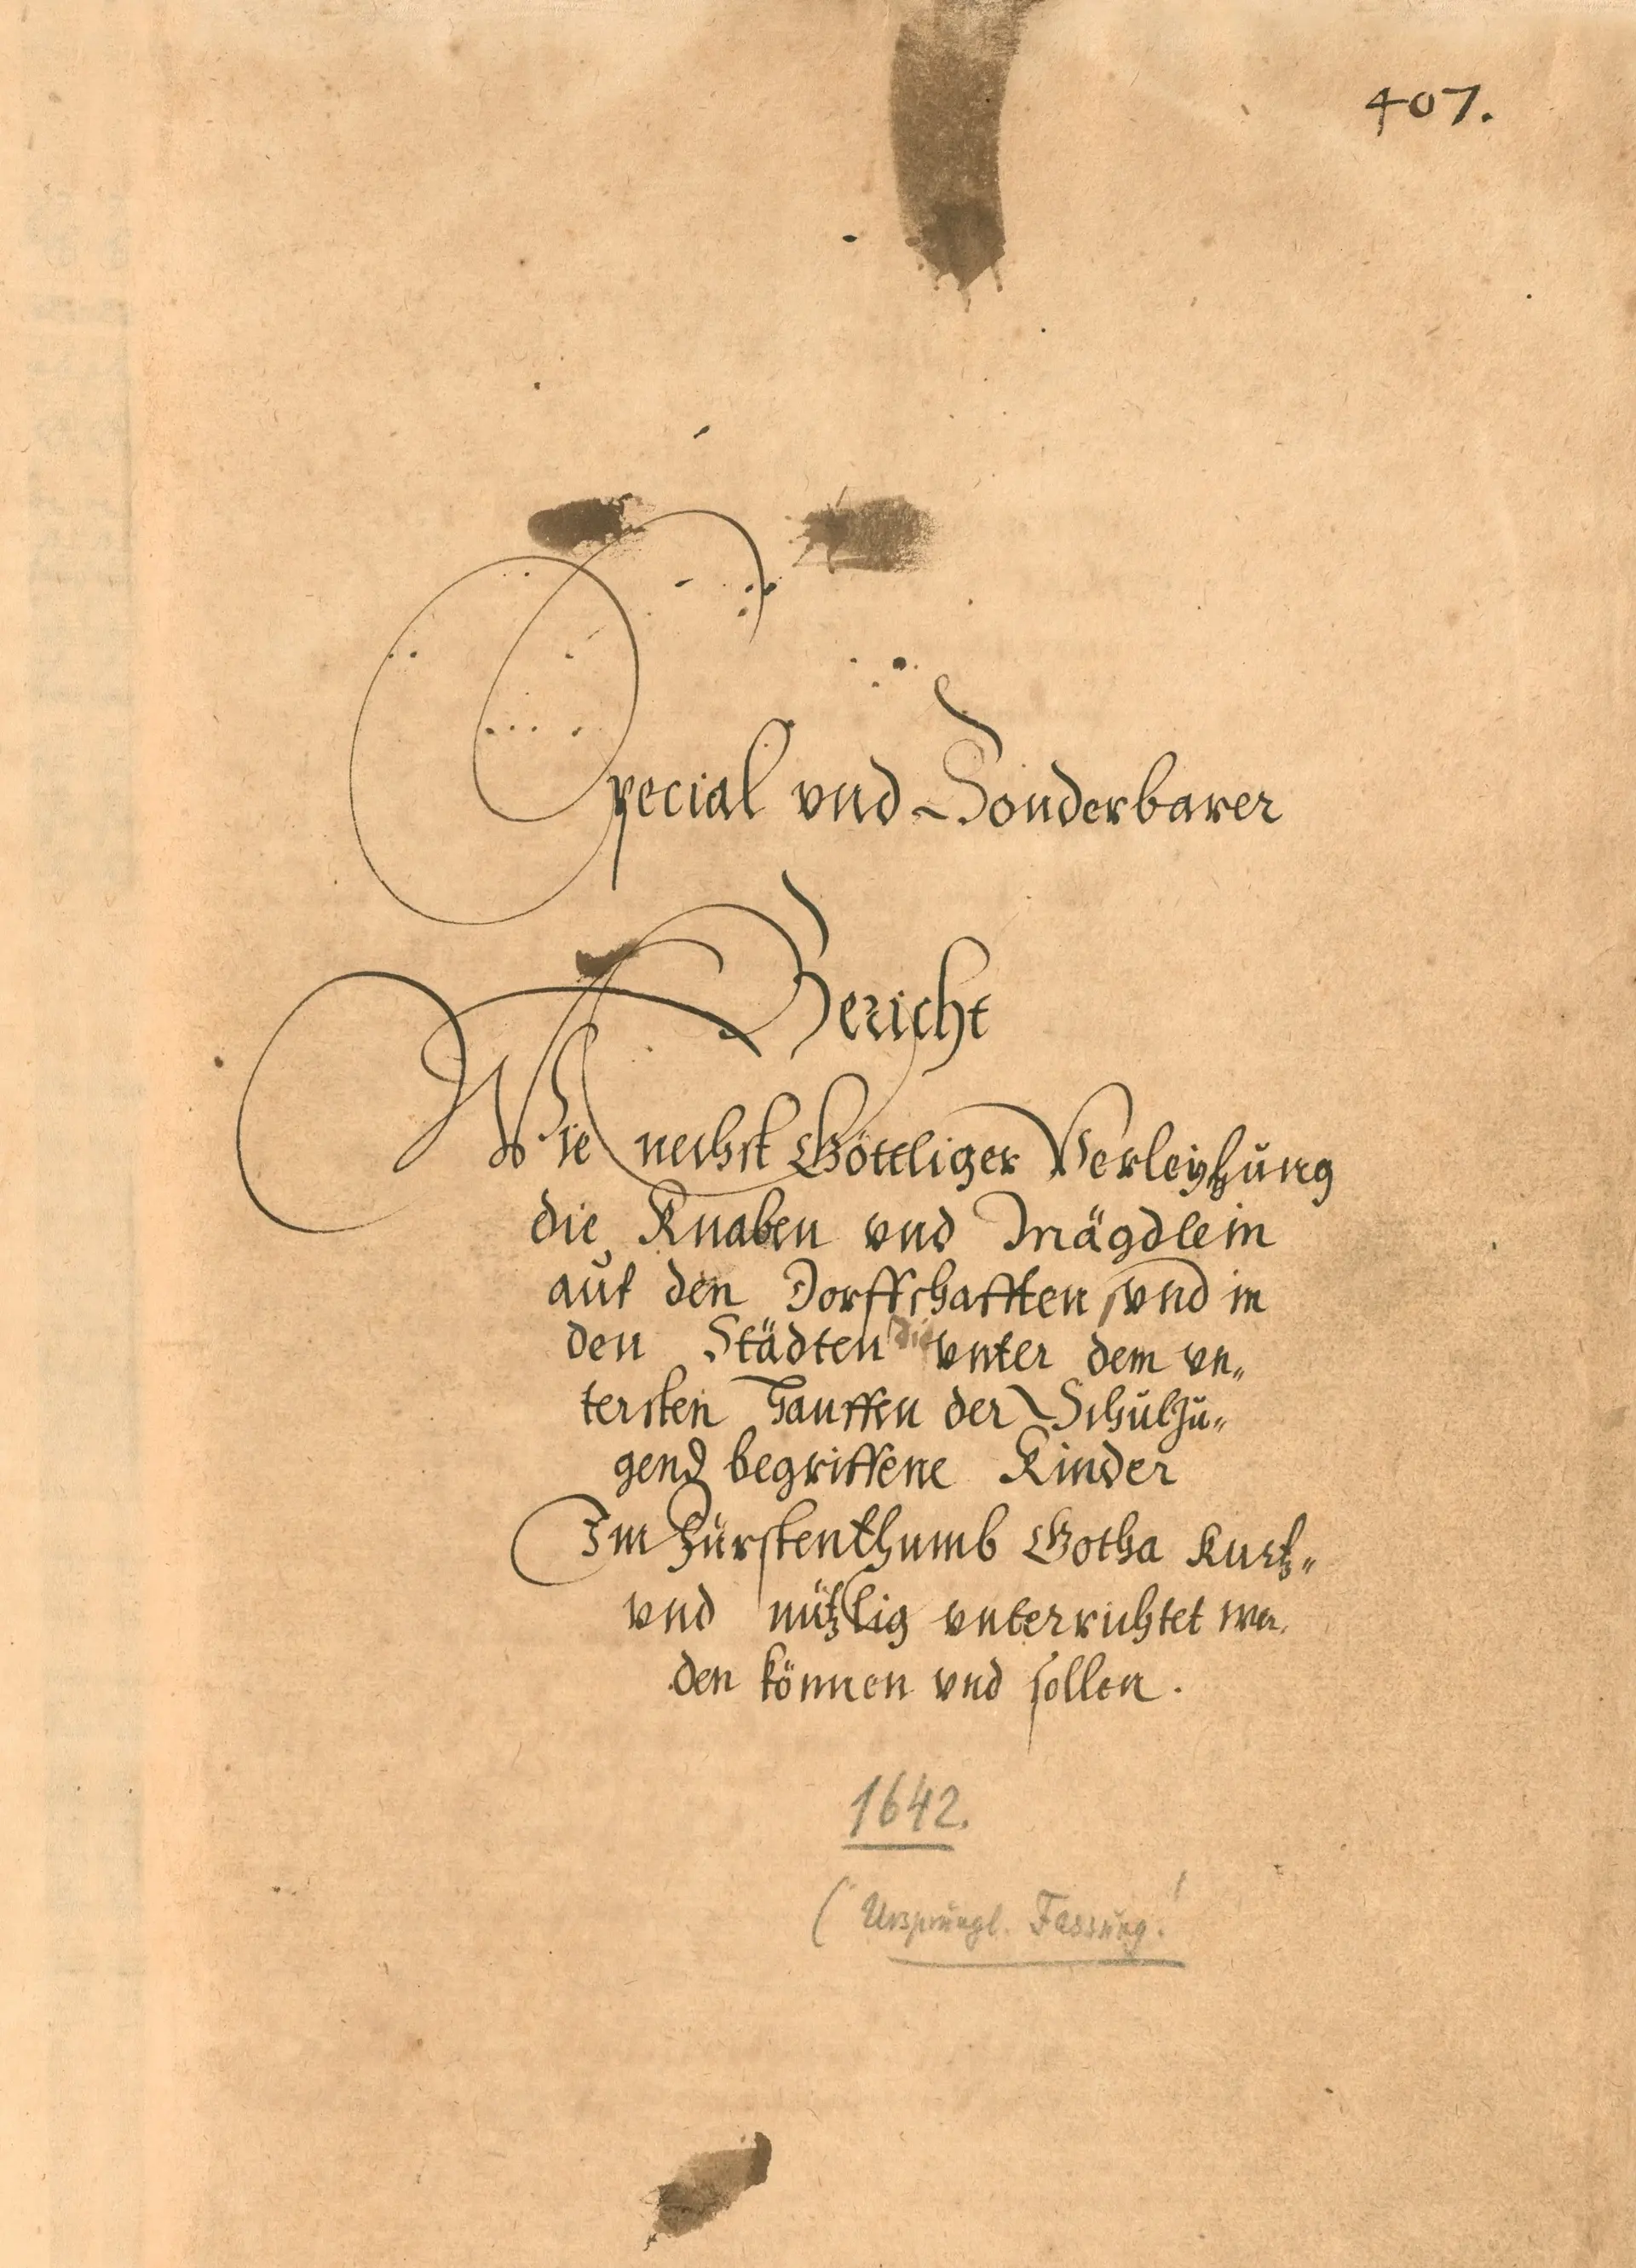 407.
Special vnd Sonderbarer
Bericht
Wie nechst Göttliger Verleyhung
die Knaben vnd Mägdlein
auf den Dorffschafften vnd in
den Städten die vnter dem vn„
tersten Hauffen der Schuljŭ„
gend begriffene Kinder
Im Fürstenthumb Gotha Kurtz„
vnd nützlig vnterrichtet wer.
den können vnd sollen.
1642.
(Ursprüngl. Fassung!